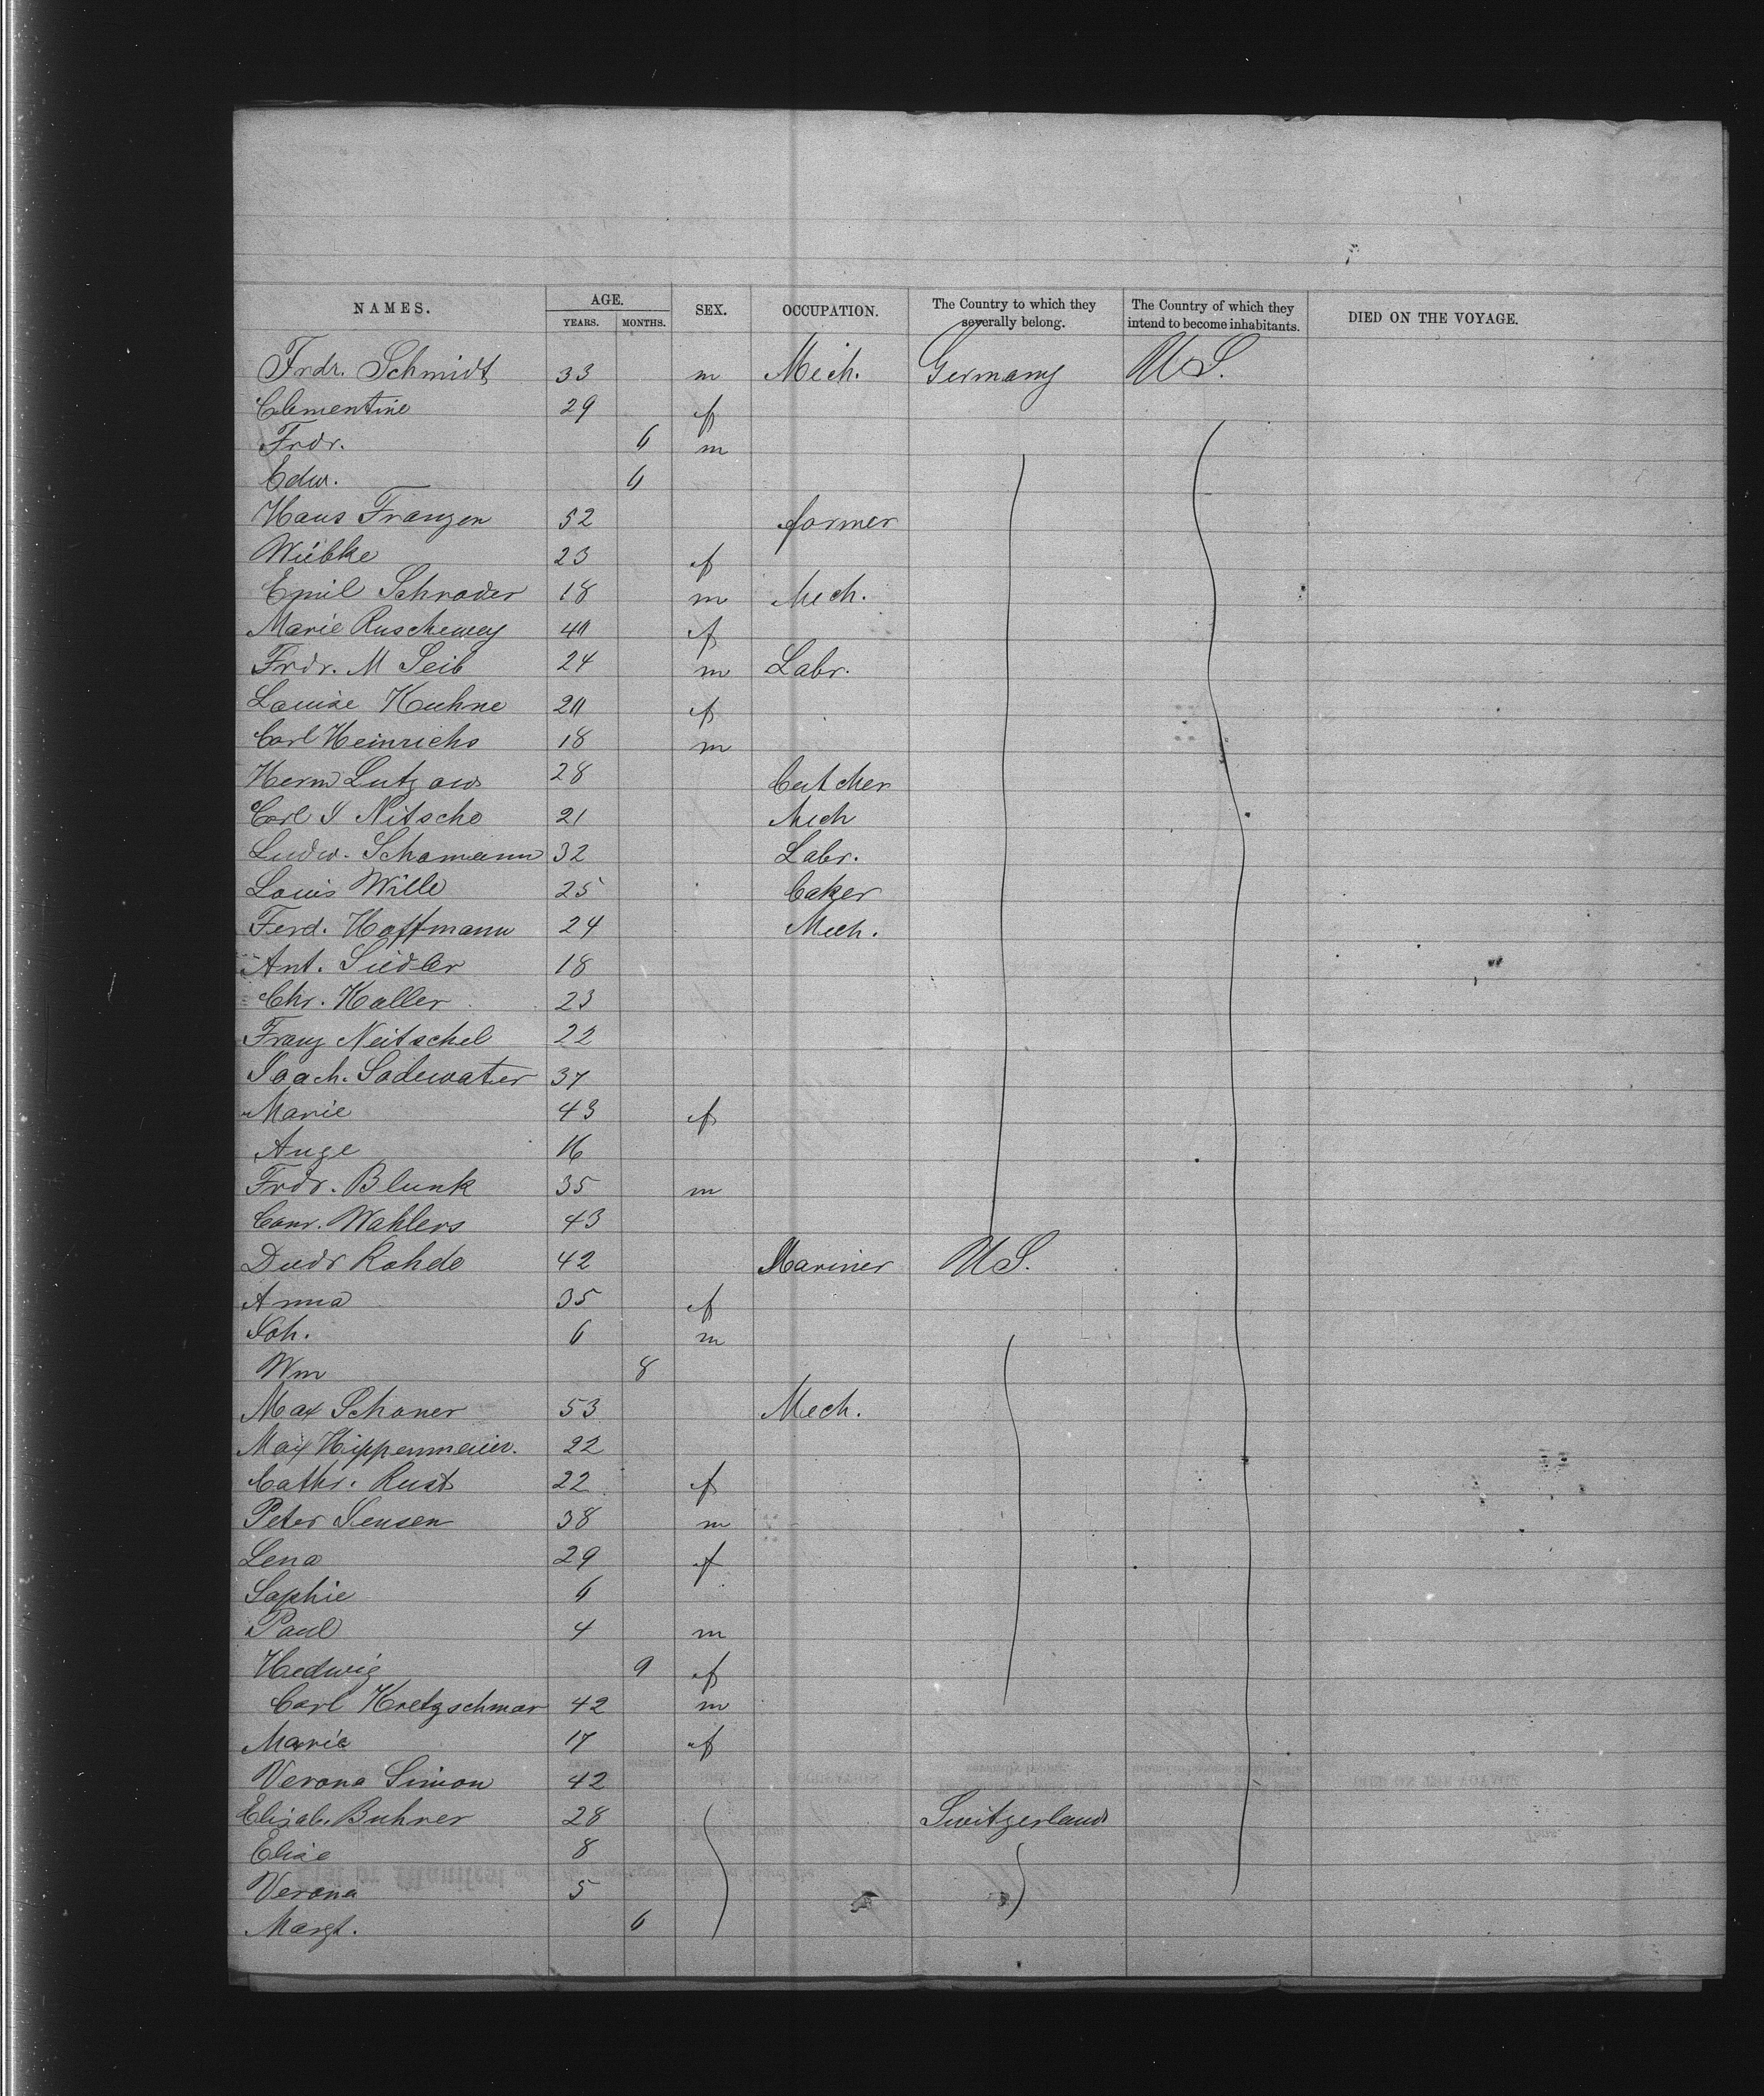 NAMES. AGE. YEARS. MONTHS. SEX. OCCUPATION. The Country to which they severally belong. The Country of which they intend to become inhabitants. DIED ON THE VOYAGE.
Frdr. Schmidt 33 m Mech. Germany U S.
Clementine 29 f
Frdr. 6 m
Edw. 6
Hans Franzen 52 farmer
Wiebke 23 f
Emil Schrader 18 m Mech.
Marie Ruschewey 40 f
Frdr. M Seib 24 m Labr.
Louise Kuhne 20 f
Carl Heinrichs 18 m
Herm Lutzow 28 butcher
Carl I Nitsche 21 Mech
Ludw. Schamann 32 Labr.
Louis Wille 25 baker
Ferd. Hoffmann 24 Mech.
Ant. Siedler 18
Chr. Kaller 23
Franz Neitschel 22
Joach. Sodewater 37
Marie 43 f
Auge 16
Frdr. Blunk 35 m
Conr. Wahlers 43
Diedr Rohde 42 Mariner U S.
Anna 35 f
Joh. 6 m
Wm 8
Max Schoner 53 Mech.
Max Hippenmeier. 22
Cathr. Rust 22 f
Peter Jensen 38 m
Lena 29 f
Sophie 6
Paul 4 m
Hedwig 9 f
Carl Kretzschmar 42 m
Marie 17 f
Verona Simon 42
Elisab. Buhrer 28 Switzerland
Elise 8
Verona 5
Margt. 6